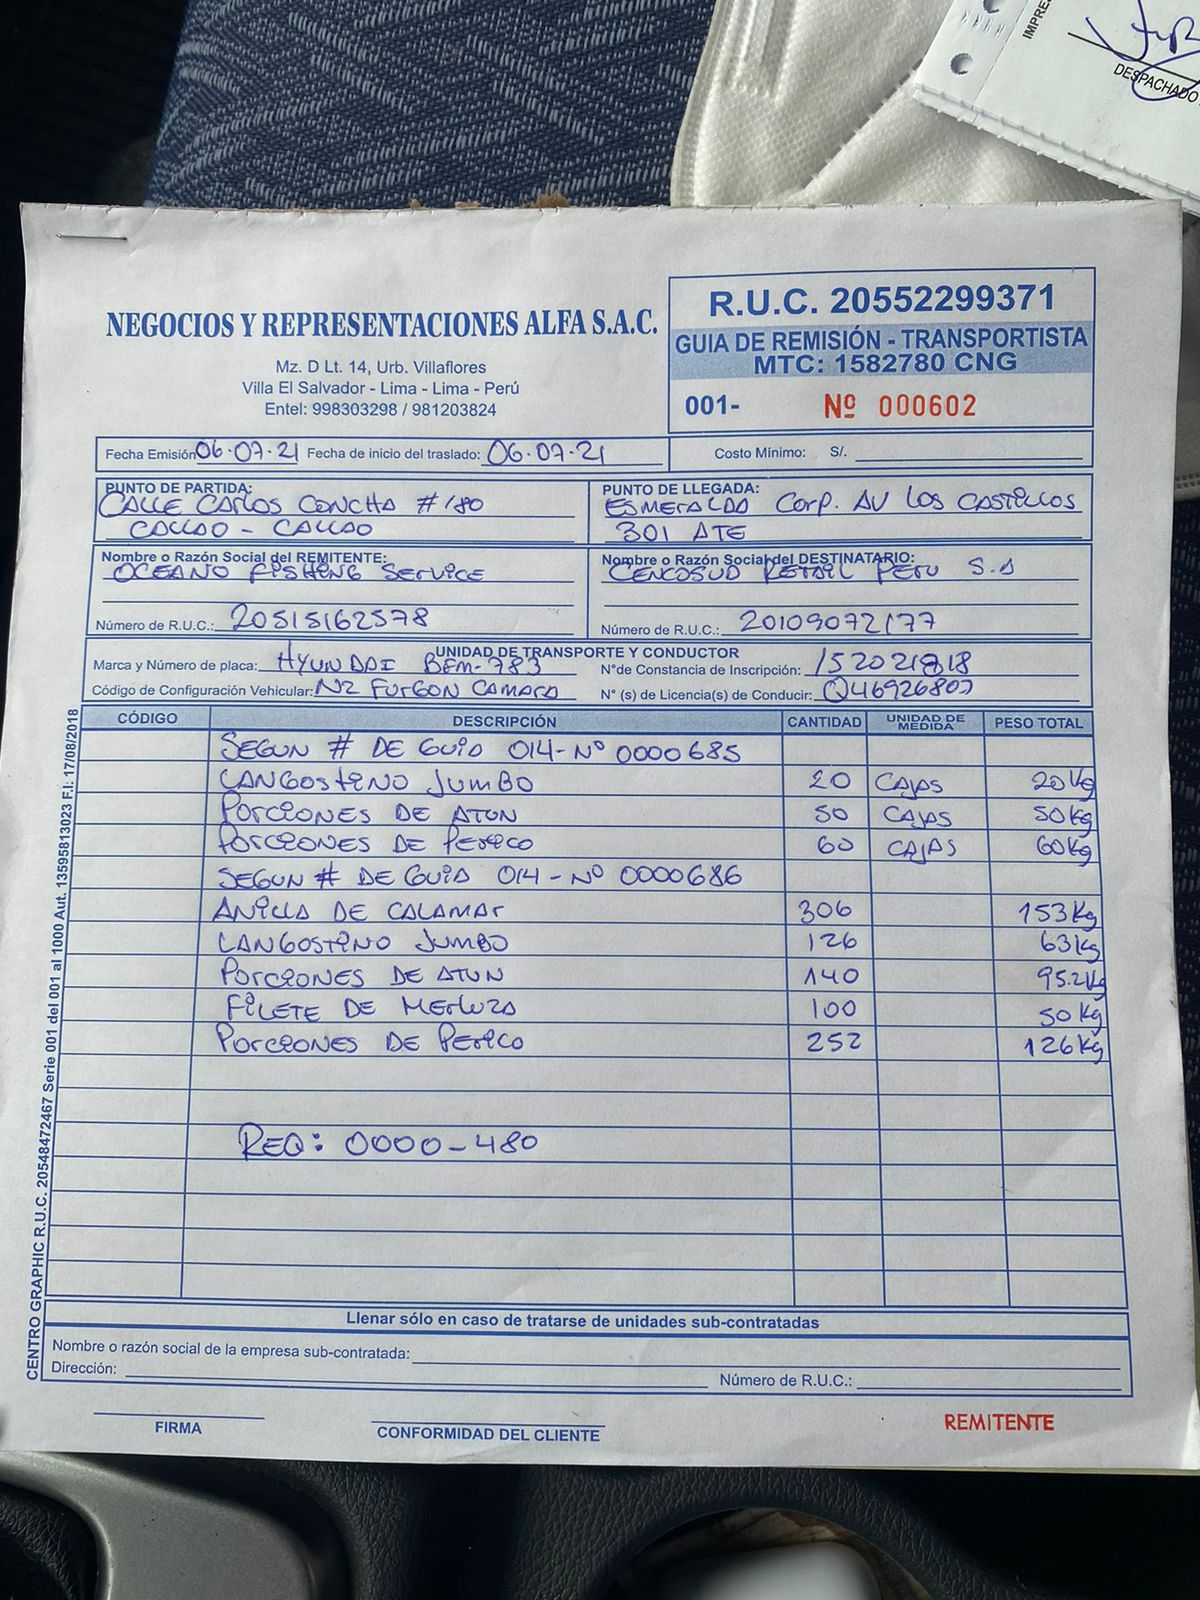 IMPRE
DESPACHADO
NEGOCIOS Y REPRESENTACIONES ALFA S.A.C.
Mz. D Lt. 14, Urb. Villaflores
Villa El Salvador - Lima - Lima - Perú
Entel: 998303298 / 981203824
R.U.C. 20552299371
GUIA DE REMISIÓN - TRANSPORTISTA
MTC: 1582780 CNG
001- Nº 000602
Fecha Emisión 06-07-21 Fecha de inicio del traslado: 06-07-21
Costo Mínimo: S/.
PUNTO DE PARTIDA:
CALLE CARLOS CONCHA # 180
CALLAO - CALLAO
PUNTO DE LLEGADA:
ESMERALDA Corp. AV LOS CASTILLOS
301 ATE
Nombre o Razón Social del REMITENTE:
OCEANO FISHING SERVICE
Número de R.U.C.: 20515162578
Nombre o Razón Social del DESTINATARIO:
CENCOSUD RETAIL PERU S.A
Número de R.U.C.: 20109072177
UNIDAD DE TRANSPORTE Y CONDUCTOR
Marca y Número de placa: HYUNDAI BEM-783
N°de Constancia de Inscripción:
Código de Configuración Vehicular: N2 FURGON CAMARA
N° (s) de Licencia(s) de Conducir:
CÓDIGO DESCRIPCIÓN CANTIDAD UNIDAD DE MEDIDA PESO TOTAL
SEGUN # DE GUIA 014-Nº 0000685
LANGOSTINO JUMBO 20 CAJAS 20Kg
PORCIONES DE ATUN 50 CAJAS 50Kg
PORCIONES DE PERICO 60 CAJAS 60Kg
SEGUN # DE GUIA 014-Nº 0000686
ANILLA DE CALAMAR 306 153Kg
LANGOSTINO JUMBO 126 63Kg
PORCIONES DE ATUN 140 95.2Kg
FILETE DE MERLUZA 100 50Kg
PORCIONES DE PERICO 252 126Kg
REQ: 0000-480
Llenar sólo en caso de tratarse de unidades sub-contratadas
Nombre o razón social de la empresa sub-contratada:
Dirección: Número de R.U.C.:
FIRMA
CONFORMIDAD DEL CLIENTE
REMITENTE
CENTRO GRAPHIC R.U.C. 20548472467 Serie 001 del 001 al 1000 Aut. 13595813023 F.I: 17/08/2018